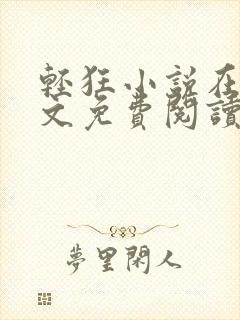 輕狂小說在
文免費閱讀
夢里閑人